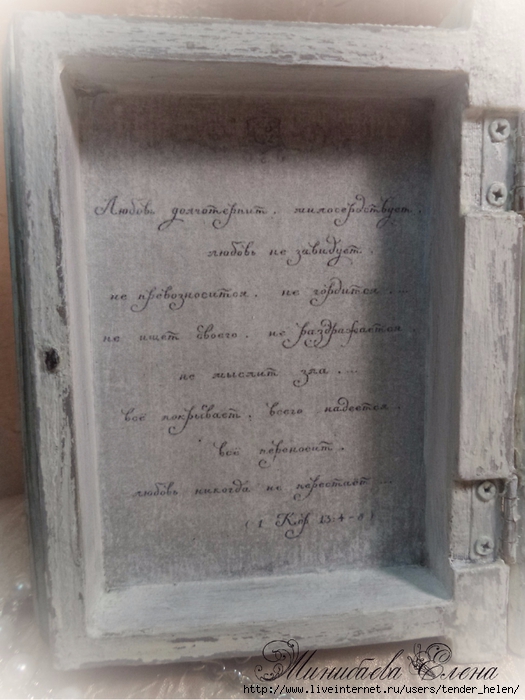 Любовь долготерпит, милосердствует,
любовь не завидует,
не превозносится, не гордится, ...
не ищет своего, не раздражается,
не мыслит зла, ...
всё покрывает, всего надеется,
всё переносит.
любовь никогда не перестаёт ...
( 1 Кор 13:4-8 )
Минибаева Елена
http://www.liveinternet.ru/users/tender_helen/